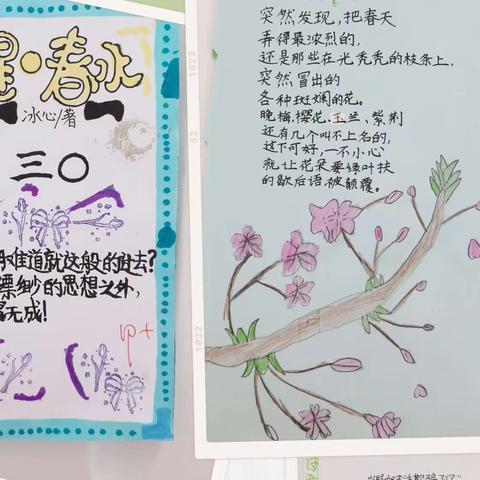 星·春水
冰心/著
三〇
难道就这般的过去?
缥缈的思想之外,
无成!
突然发现,把春天
弄得最浓烈的,
还是那些在光秃秃的枝条上,
突然冒出的
各种斑斓的花。
晚梅,樱花,玉兰、紫荆
还有几个叫不上名的,
这下可好,一不小心
就让花朵要绿叶扶
的歇后语被颠覆。